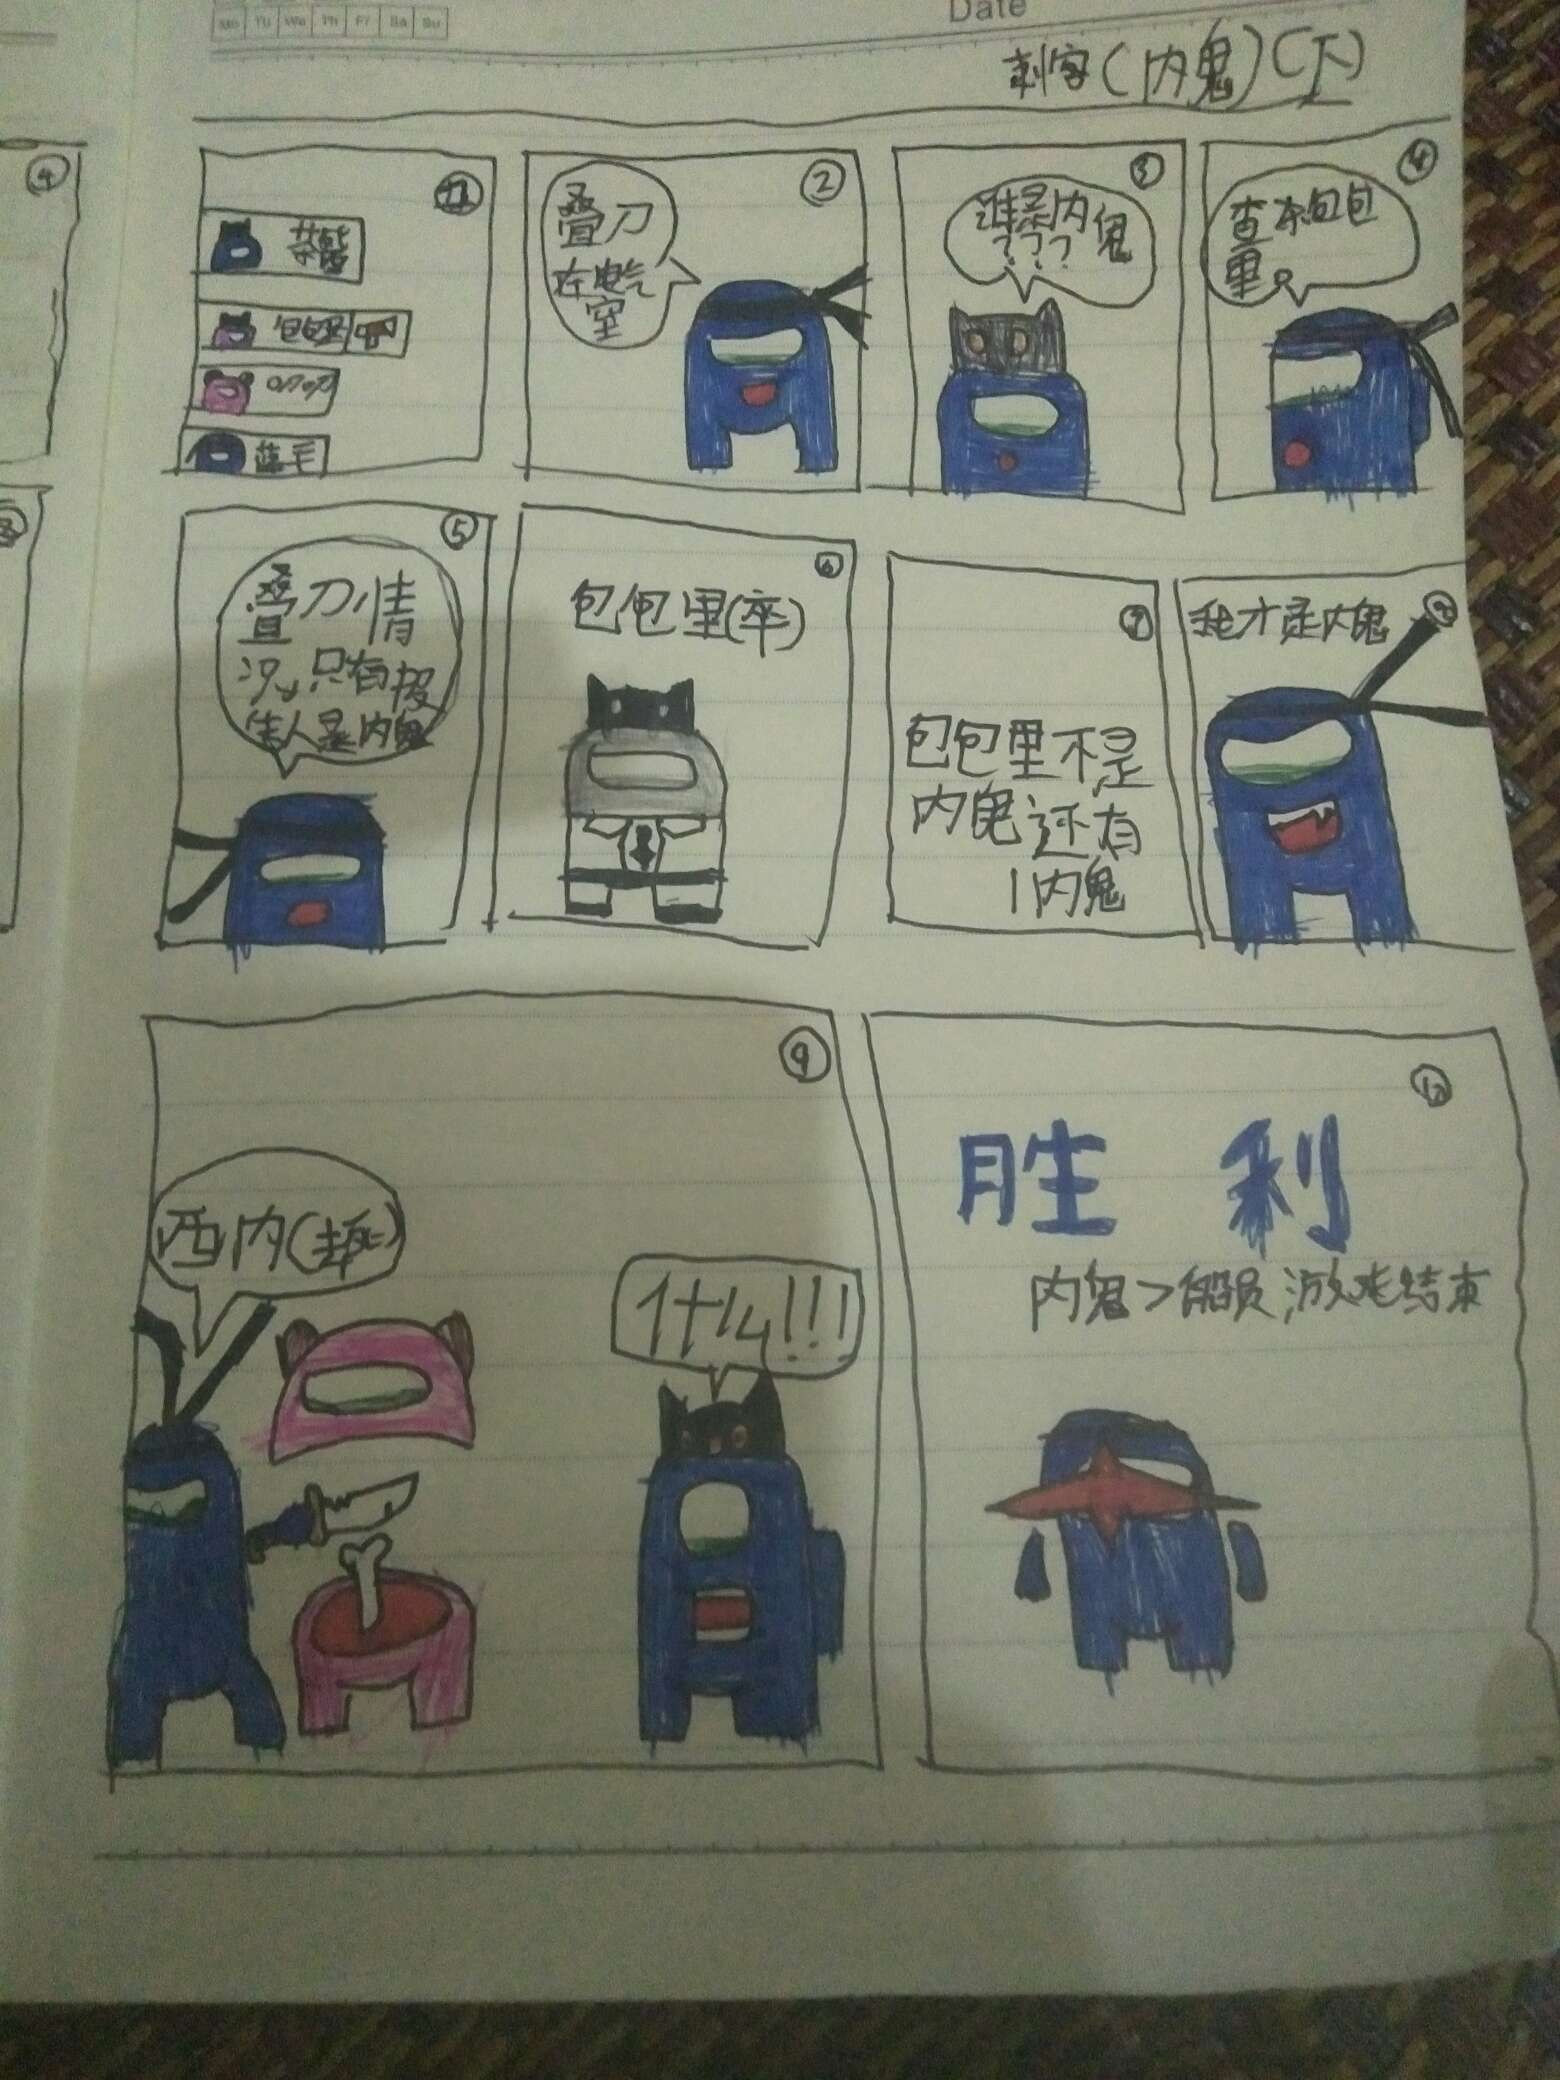 Mo Tu We Th Fr Sa Su
Date
刺客(内鬼)(下)
包包里
叨叨
蓝毛
②
叠刀
在电气
室
③
谁是内鬼
???
④
查杀包包
里。
⑤
叠刀情
况，只有报
告人是内鬼
⑥
包包里(卒)
⑦
包包里不是
内鬼还有
1内鬼
⑧
我才是内鬼
⑨
西内(去死)
什么!!!
⑩
胜利
内鬼>船员,游戏结束